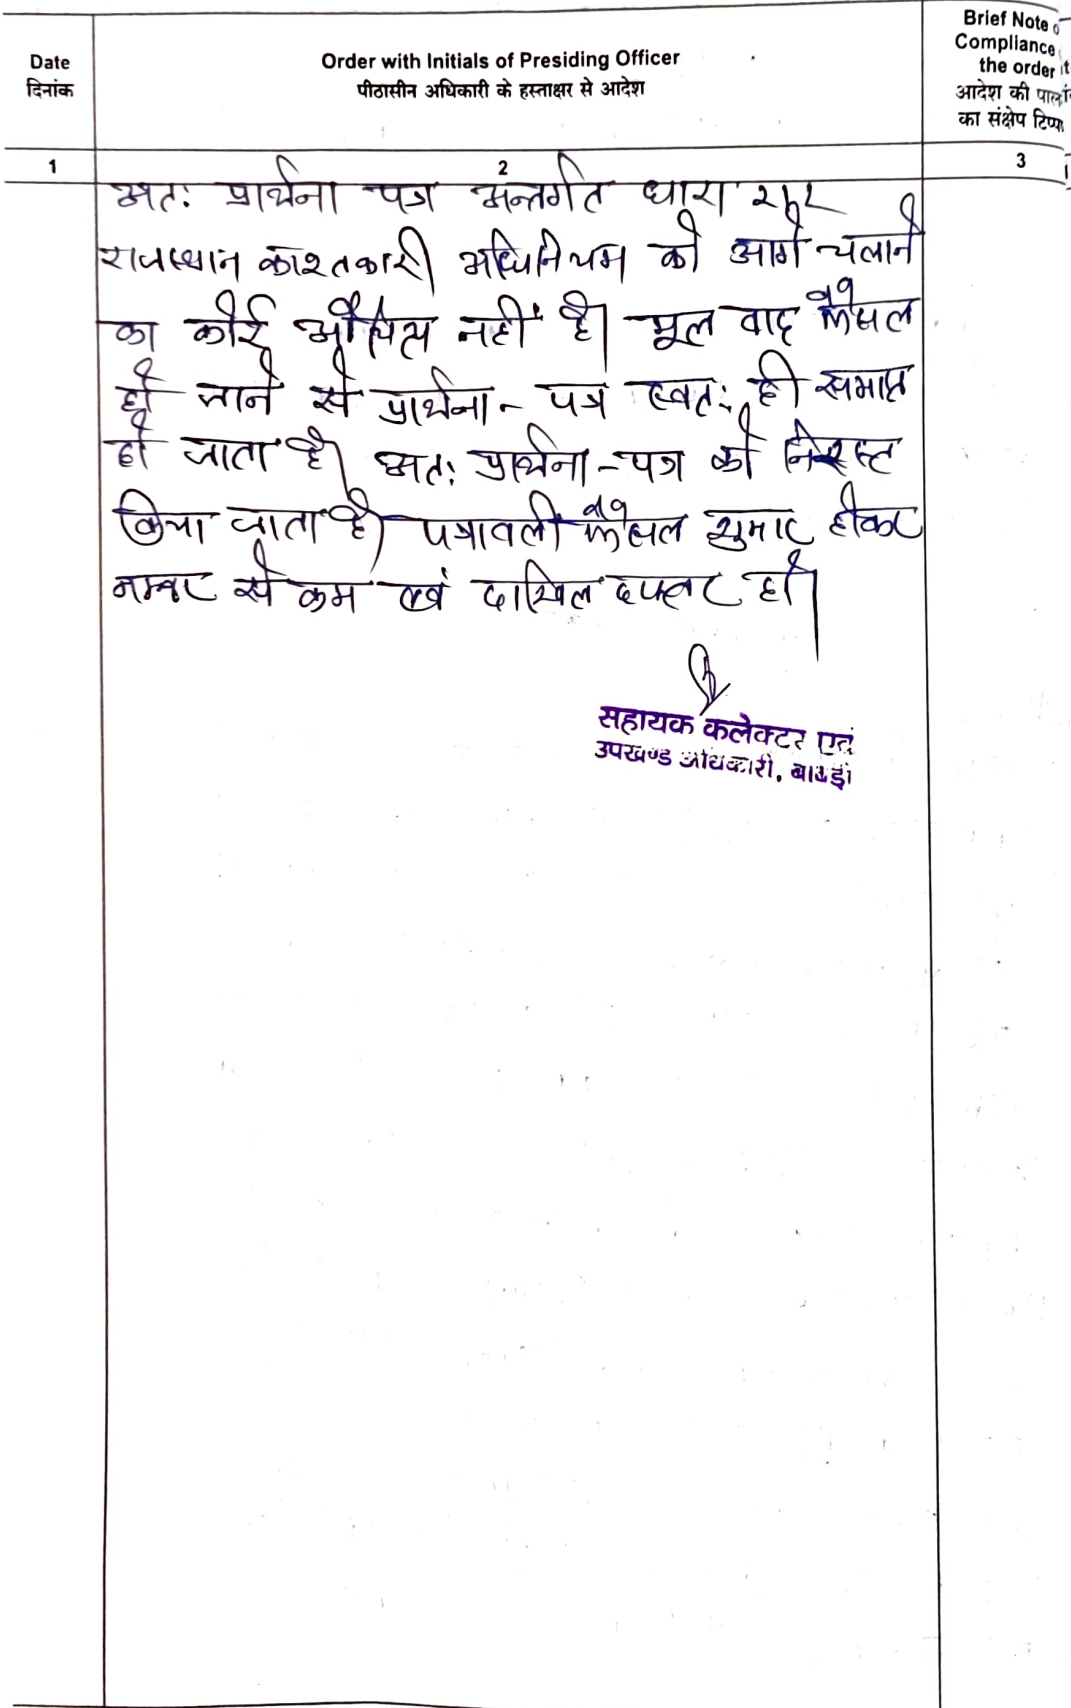 Date
दिनांक
Order with Initials of Presiding Officer
पीठासीन अधिकारी के हस्ताक्षर से आदेश
Brief Note o
Compliance
the order
आदेश की पाल
का संक्षेप टिप्प
1
2
3
अतः प्रार्थना पत्र अन्तर्गत धारा
राजस्थान काश्तकारी अधिनियम को आगे चलाने
का कोई औचित्य नहीं है। मूल वाद फैसल
हो जाने से प्रार्थना - पत्र स्वतः ही समाप्त
हो जाता है। अतः प्रार्थना - पत्र को निरस्त
किया जाता है। पत्रावली फैसल सुमार होकर
नम्बर से कम एवं दाखिल दफ्तर हो।
सहायक कलेक्टर एवं
उपखण्ड अधिकारी,